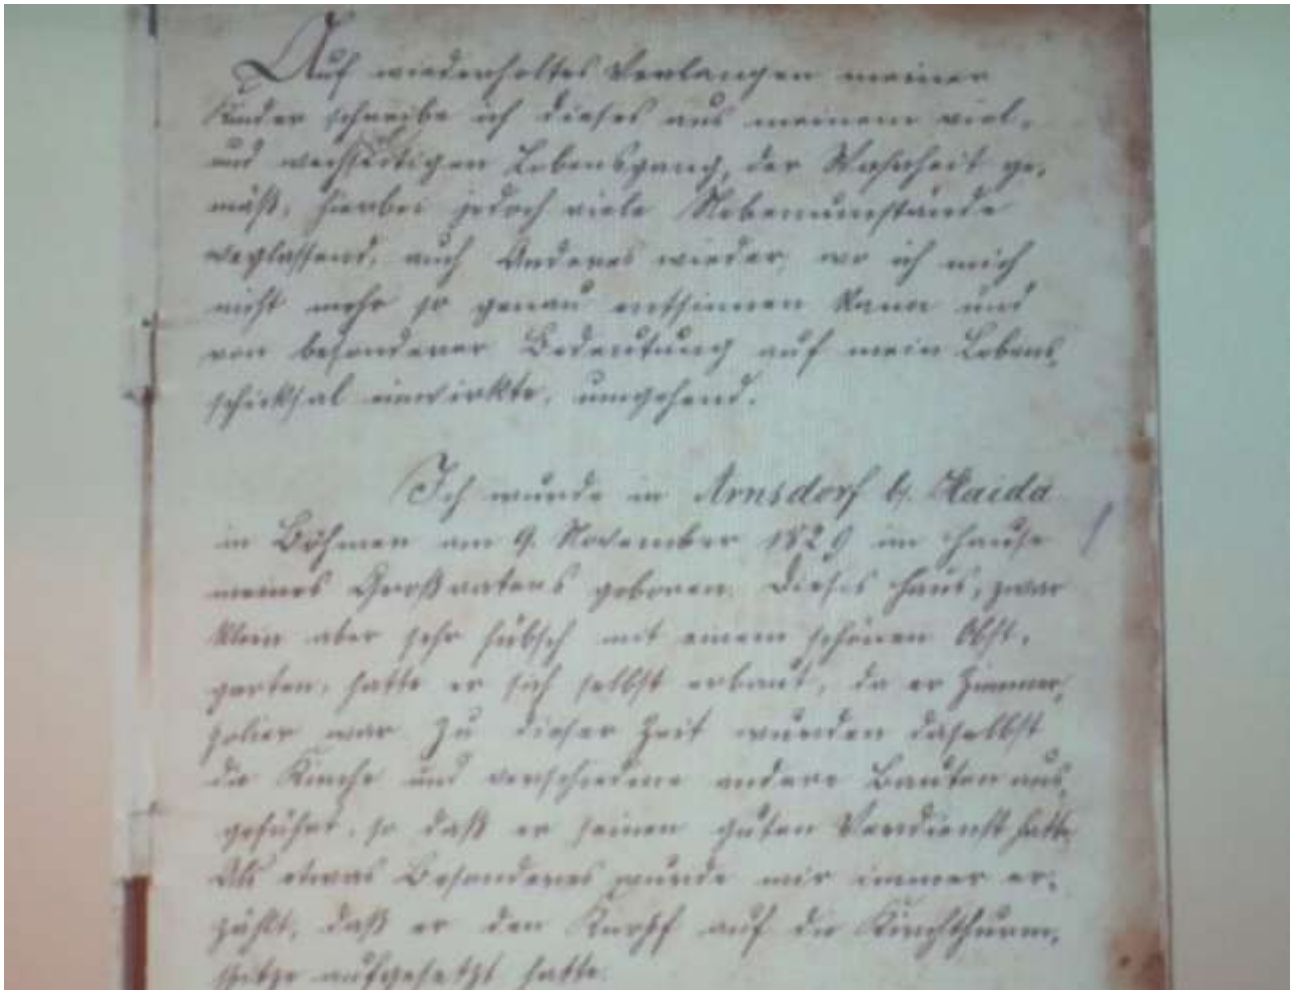 Auf wiederholtes Verlangen meiner
Kinder schreibe ich dieses aus meinem viel-
und wechseitigen Lebensgang, der Wahrheit ge-
mäß, hierbei jedoch viele Nebenumstände
weglassend, auch Anderes wieder, wo ich mich
nicht mehr so genau entsinnen kann und
von besonderer Bedeutung auf mein Lebens-
schicksal einwirkte, umgehend.
Ich wurde in Arnsdorf b. Haida
in Böhmen am 9. November 1829 im Hause
meines Großvaters geboren. Dieses Haus, zwar
klein aber sehr hübsch mit einem schönen Obst-
garten, hatte er sich selbst erbaut, da er Zimmer-
polier war. Zu dieser Zeit wurden daselbst
die Kirche und verschiedene andere Bauten aus-
geführt, so daß er seinen guten Verdienst hatte.
Als etwas Besonderes wurde mir immer er-
zählt, daß er den Knopf auf die Kirchthurm-
spitze aufgesetzt hatte.